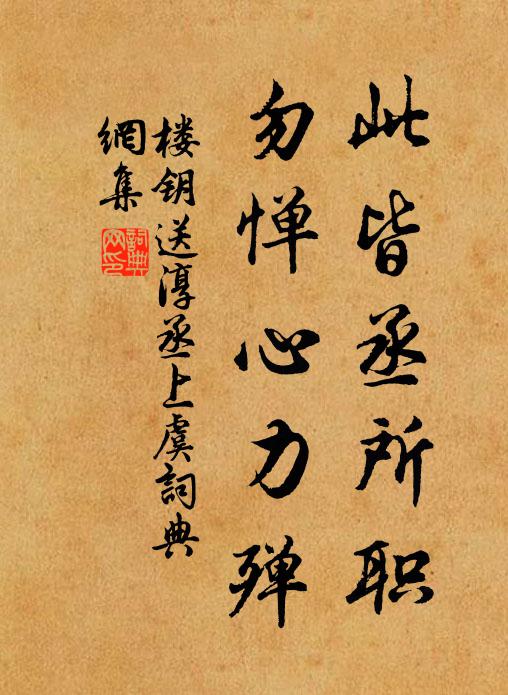 此皆丞所职
勿惮心力殚
楼钥送淳丞上虞詞典
網集
詞典
网印